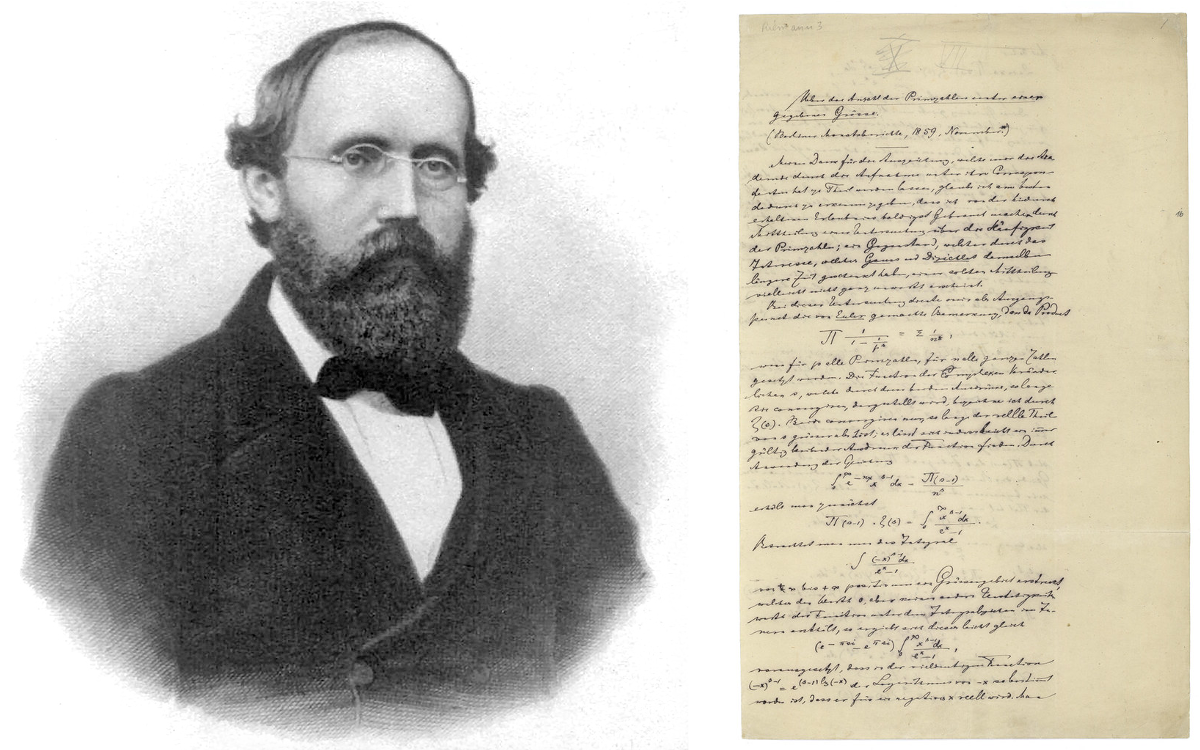 Ueber die Anzahl der Primzahlen unter einer
gegebenen Grösse.
(Berliner Monatsberichte, 1859, November)
Meinen Dank für die Auszeichnung, welche mir die Aka-
demie durch die Aufnahme unter ihre Correspon-
denten hat zu Theil werden lassen, glaube ich am besten
dadurch zu erkennen zu geben, dass ich von der hierdurch
erhaltenen Erlaubniss baldigst Gebrauch mache durch
Mittheilung einer Untersuchung über die Häufigkeit
der Primzahlen; ein Gegenstand, welcher durch das
Interesse, welches Gauss und Dirichlet demselben
längere Zeit geschenkt haben, einer solchen Mittheilung
vielleicht nicht ganz unwerth erscheint.
Bei dieser Untersuchung diente mir als Ausgangs-
punkt die von Euler gemachte Bemerkung, dass das Product
∏ 1/(1 − 1/p^s) = Σ 1/n^s,
wenn für p alle Primzahlen, für n alle ganzen Zahlen
gesetzt werden. Die Function der complexen Veränder-
lichen s, welche durch diese beiden Ausdrücke, so lange
sie convergiren, dargestellt wird, bezeichne ich durch
ζ(s). Beide convergiren nur, so lange der reelle Theil
von s grösser als 1 ist; es lässt sich indess leicht ein immer
gültig bleibender Ausdruck der Function finden. Durch
Anwendung der Gleichung
∫₀^∞ e^(−nx) x^(s−1) dx = Π(s−1)/n^s
erhält man zunächst
Π(s−1) ζ(s) = ∫₀^∞ x^(s−1) dx/(e^x − 1).
Betrachtet man nun das Integral
∫ (−x)^(s−1) dx/(e^x − 1)
von +∞ bis +∞ positiv um ein Grössengebiet erstreckt,
welches den Werth 0, aber keinen andern Unstetigkeits-
werth der Function unter dem Integralzeichen im In-
nern enthält, so ergiebt sich dieses leicht gleich
(e^(−πsi) − e^(πsi)) ∫₀^∞ x^(s−1) dx/(e^x − 1),
vorausgesetzt, dass in der vieldeutigen Function
(−x)^(s−1) = e^((s−1) lg(−x)) der Logarithmus von −x so bestimmt
worden ist, dass er für ein negatives x reell wird.